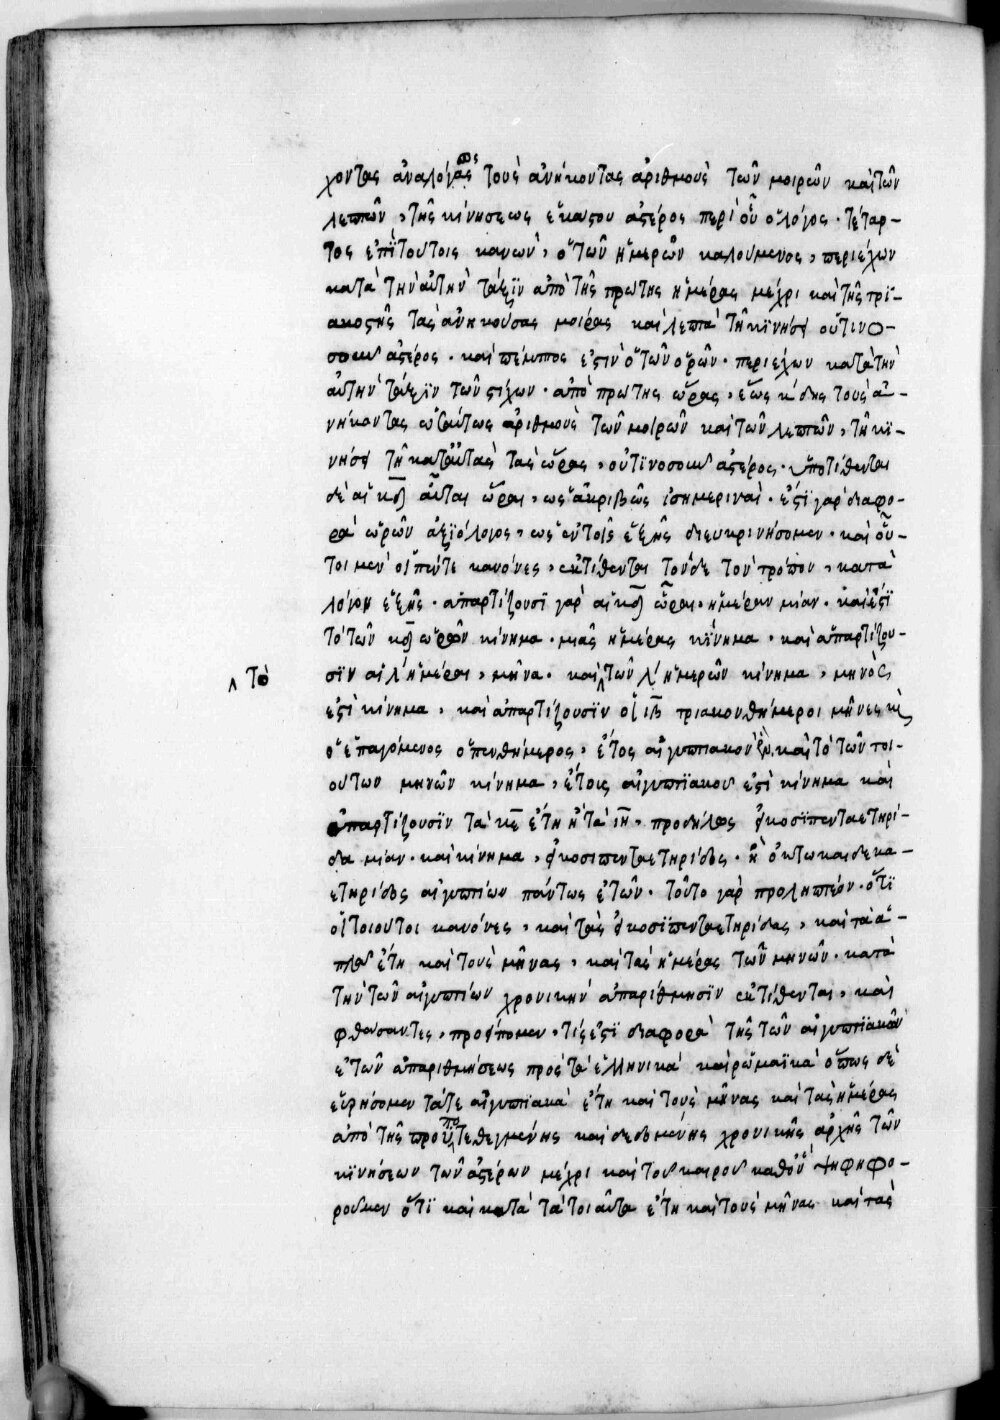 χοντας ἀναλόγως τοὺς ἀνήκοντας ἀριθμοὺς τῶν μοιρῶν καὶ τῶν
λεπτῶν, τῆς κινήσεως ἑκάστου ἀστέρος περὶ οὗ ὁ λόγος· τέταρ-
τος ἐπὶ τούτοις κανὼν, ὁ τῶν ἡμερῶν καλούμενος, περιέχων
κατὰ τὴν αὐτὴν τάξϊν ἀπὸ τῆς πρώτης ἡμέρας μέχρι καὶ τῆς τρϊ-
ακοστῆς τὰς ἀνηκούσας μοίρας καὶ λεπτὰ τῆ κϊνήσει οὗτινο-
σουν ἀστέρος· καὶ πέμπτος ἐστὶν ὁ τῶν ὡρῶν· περιέχων κατὰ τὴν
αὐτὴν τάξϊν τῶν στίχων· ἀπὸ πρώτης ὥρας, ἕως κδης τοὺς ἀ-
νήκοντας ὡσαύτως ἀριθμοὺς τῶν μοιρῶν καὶ τῶν λεπτῶν, τῆ κϊ-
νήσει τῆ κατ' αὐτὰς τὰς ὥρας, οὗτϊνοσουν ἀστέρος· ὑποτίθενται
δὲ αἱ κδ αὗται ὧραι, ὡς ἀκριβῶς ἰσημεριναὶ· ἔστϊ γὰρ διαφο-
ρὰ ὡρῶν ἀξϊόλογος, ὡς ἐν τοῖς ἑξῆς διευκρινήσομεν· καὶ οὗ-
τοι μὲν οἱ πέντε κανόνες, ἐκτίθενται τόνδε τὸν τρόπον, κατὰ
λόγον ἑξῆς· ἀπαρτίζουσϊ γὰρ αἱ κδ ὧραι, ἡμέραν μίαν· καὶ ἔστϊ
τὸ τῶν κδ ὡρῶν κίνημα· μιᾶς ἡμέρας κϊνημα, καὶ ἀπαρτίζου-
σϊν αἱ λ ἡμέραι, μῆνα· καὶ ⸌τὸ⸍ τῶν λ ἡμερῶν κίνημα, μηνὸς
ἐστὶ κίνημα, καὶ ἀπαρτίζουσϊν οἱ ιβ τριακονθήμεροι μῆνες κ
ὁ ἐπαγόμενος ὁ πενθήμερος, ἔτος αἰγυπτιακὸν ἓν, καὶ τὸ τῶν τοι-
ούτων μηνῶν κίνημα, ἔτους αἰγυπτϊακοῦ ἐστὶ κίνημα καὶ
ἀπαρτίζουσϊν τὰ κε ἔτη ἢ τὰ ιη, προδήλως εἰκοσϊπενταετηρί-
δα μίαν· καὶ κίνημα, εἰκοσιπενταετηρίδος· ἢ ὀκτωκαιδεκα-
ετηρίδος αἰγυπτίων πάντως ἐτῶν· τοῦτο γὰρ προληπτέον· ὅτϊ
οἱ τοιοῦτοι κανόνες, καὶ τὰς εἰκοσϊπενταετηρίδας, καὶ τὰ ἁ-
πλᾶ ἔτη καὶ τοὺς μῆνας, καὶ τὰς ἡμέρας τῶν μηνῶν· κατὰ
τὴν τῶν αἰγυπτίων χρονικὴν ἀπαρίθμησϊν ἐκτίθενται, καὶ
φθάσαντες, προείπομεν, τίς ἐστϊ διαφορὰ τῆς τῶν αἰγυπτϊακῶν
ἐτῶν ἀπαριθμήσεως πρὸς τὰ ἑλληνικὰ καὶ ῥωμαϊκὰ ὅπως δὲ
εὑρήσομεν τά τε αἰγυπτϊακὰ ἔτη καὶ τοὺς μῆνας καὶ τὰς ἡμέρας
ἀπὸ τῆς προϋποτεθειμένης καὶ δεδομένης χρονικῆς ἀρχῆς τῶν
κϊνήσεων τῶν ἀστέρων μέχρι καὶ τοῦ καιροῦ καθ' ὃν ψηφηφο-
ροῦμεν ὅτϊ καὶ κατὰ τὰ τοιαῦτα ἔτη καὶ τοὺς μῆνας καὶ τὰς